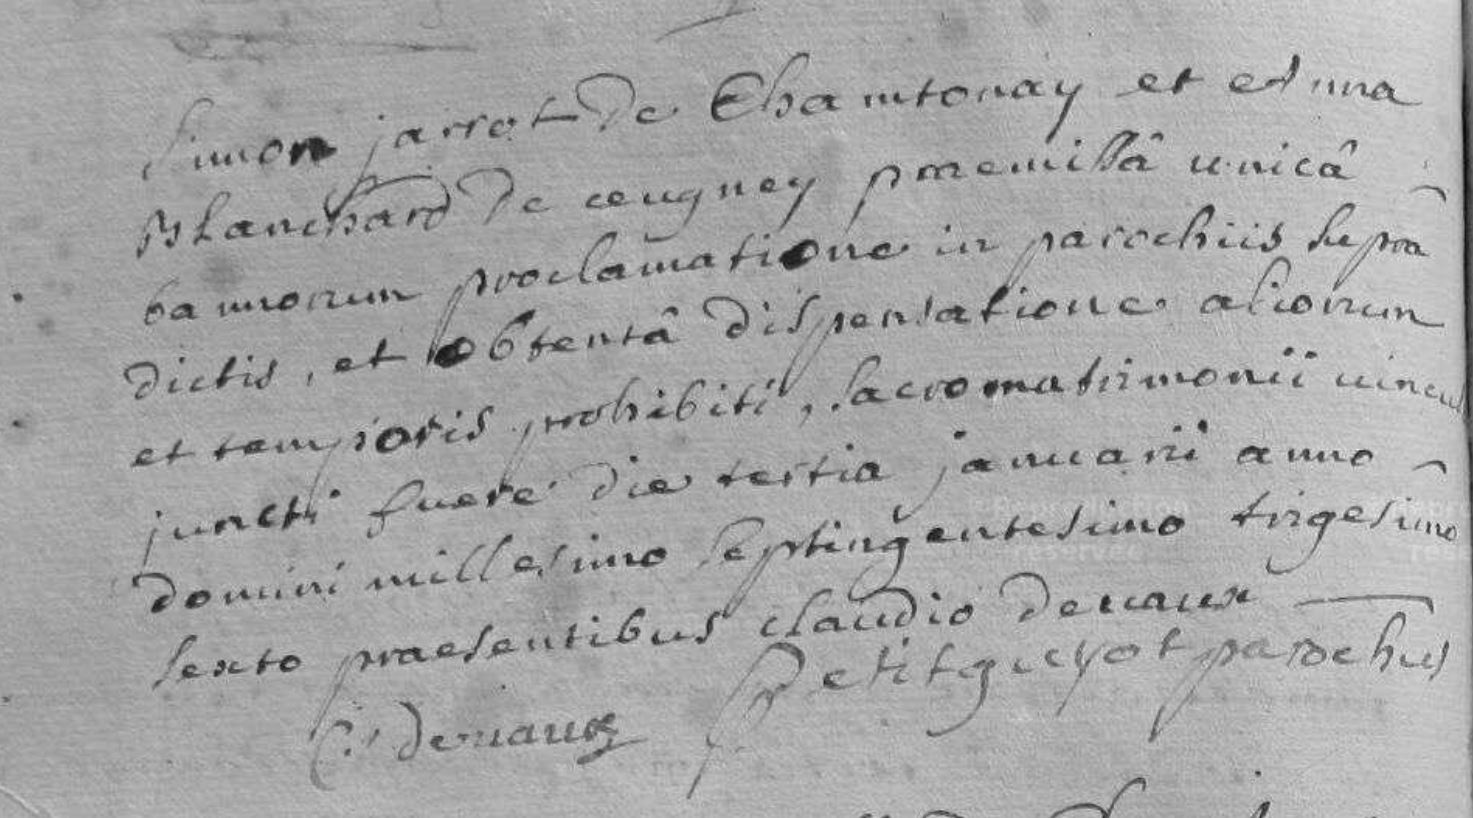 Simon jarrot de Chamtonay et Anna
Blanchard de ceugney praemissâ unicâ
bannorum proclamatione in parochiis supra
dictis, et obtentâ dispensatione aliorum
et temporis prohibiti, sacro matrimonii uincul
juncti fuere die tertia januarii anno
domini millesimo septingentesimo trigesimo
sexto praesentibus claudio deuaux
Petitguyot parochus
C. deuaux